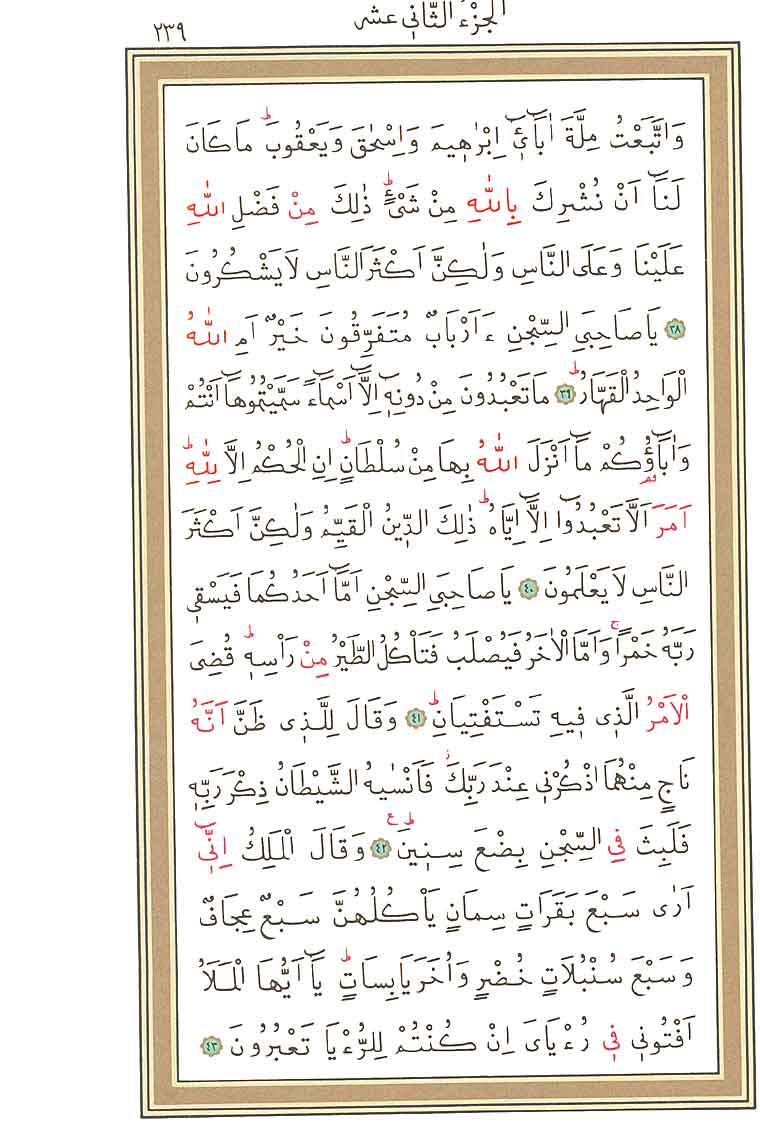 الجزء الثاني عشر
٢٣٩
وَاتَّبَعْتُ مِلَّةَ اٰبَٓاء۪ٓي اِبْرٰه۪يمَ وَاِسْحٰقَ وَيَعْقُوبَۜ مَا كَانَ
لَنَٓا اَنْ نُشْرِكَ بِاللّٰهِ مِنْ شَيْءٍۜ ذٰلِكَ مِنْ فَضْلِ اللّٰهِ
عَلَيْنَا وَعَلَى النَّاسِ وَلٰكِنَّ اَكْثَرَ النَّاسِ لَا يَشْكُرُونَ
﴿٣٨﴾ يَا صَاحِبَيِ السِّجْنِ ءَاَرْبَابٌ مُتَفَرِّقُونَ خَيْرٌ اَمِ اللّٰهُ
الْوَاحِدُ الْقَهَّارُۜ ﴿٣٩﴾ مَا تَعْبُدُونَ مِنْ دُونِه۪ٓ اِلَّٓا اَسْمَٓاءً سَمَّيْتُمُوهَٓا اَنْتُمْ
وَاٰبَٓاؤُ۬كُمْ مَٓا اَنْزَلَ اللّٰهُ بِهَا مِنْ سُلْطَانٍۜ اِنِ الْحُكْمُ اِلَّا لِلّٰهِۜ
اَمَرَ اَلَّا تَعْبُدُٓوا اِلَّٓا اِيَّاهُۜ ذٰلِكَ الدّ۪ينُ الْقَيِّمُ وَلٰكِنَّ اَكْثَرَ
النَّاسِ لَا يَعْلَمُونَ ﴿٤٠﴾ يَا صَاحِبَيِ السِّجْنِ اَمَّٓا اَحَدُكُمَا فَيَسْق۪ي
رَبَّهُ خَمْراًۚ وَاَمَّا الْاٰخَرُ فَيُصْلَبُ فَتَأْكُلُ الطَّيْرُ مِنْ رَأْسِه۪ۜ قُضِيَ
الْاَمْرُ الَّذ۪ي ف۪يهِ تَسْتَفْتِيَانِۜ ﴿٤١﴾ وَقَالَ لِلَّذ۪ي ظَنَّ اَنَّهُ
نَاجٍ مِنْهُمَا اذْكُرْن۪ي عِنْدَ رَبِّكَۘ فَاَنْسٰيهُ الشَّيْطَانُ ذِكْرَ رَبِّه۪
فَلَبِثَ فِي السِّجْنِ بِضْعَ سِن۪ينَۜ۟ ﴿٤٢﴾ وَقَالَ الْمَلِكُ اِنّ۪ٓي
اَرٰى سَبْعَ بَقَرَاتٍ سِمَانٍ يَأْكُلُهُنَّ سَبْعٌ عِجَافٌ
وَسَبْعَ سُنْبُلَاتٍ خُضْرٍ وَاُخَرَ يَابِسَاتٍۜ يَٓا اَيُّهَا الْمَلَاُ
اَفْتُون۪ي ف۪ي رُءْيَايَ اِنْ كُنْتُمْ لِلرُّءْيَا تَعْبُرُونَ ﴿٤٣﴾